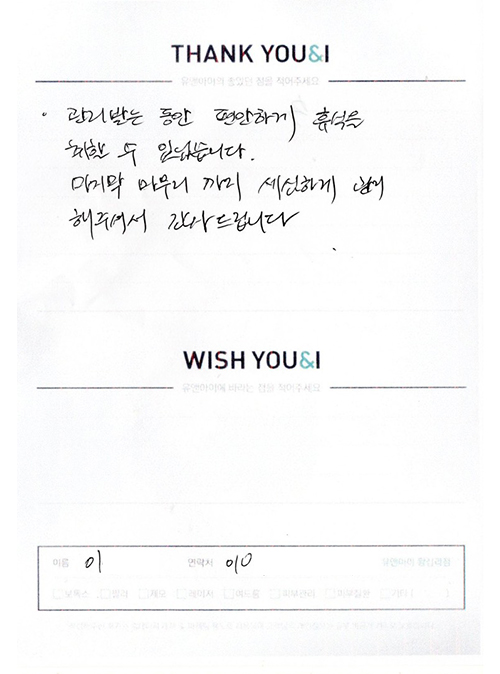 THANK YOU&I
유앤아이의 좋았던 점을 적어주세요
· 관리받는 동안 편안하게 휴식을
취할 수 있었습니다.
마지막 마무리 까지 세심하게 관리
해주셔서 감사드립니다
WISH YOU&I
유앤아이에 바라는 점을 적어주세요
이름 이 연락처 010 유앤아이 왕십리점
보톡스 필러 제모 레이저 여드름 피부관리 피부질환 기타 ( )